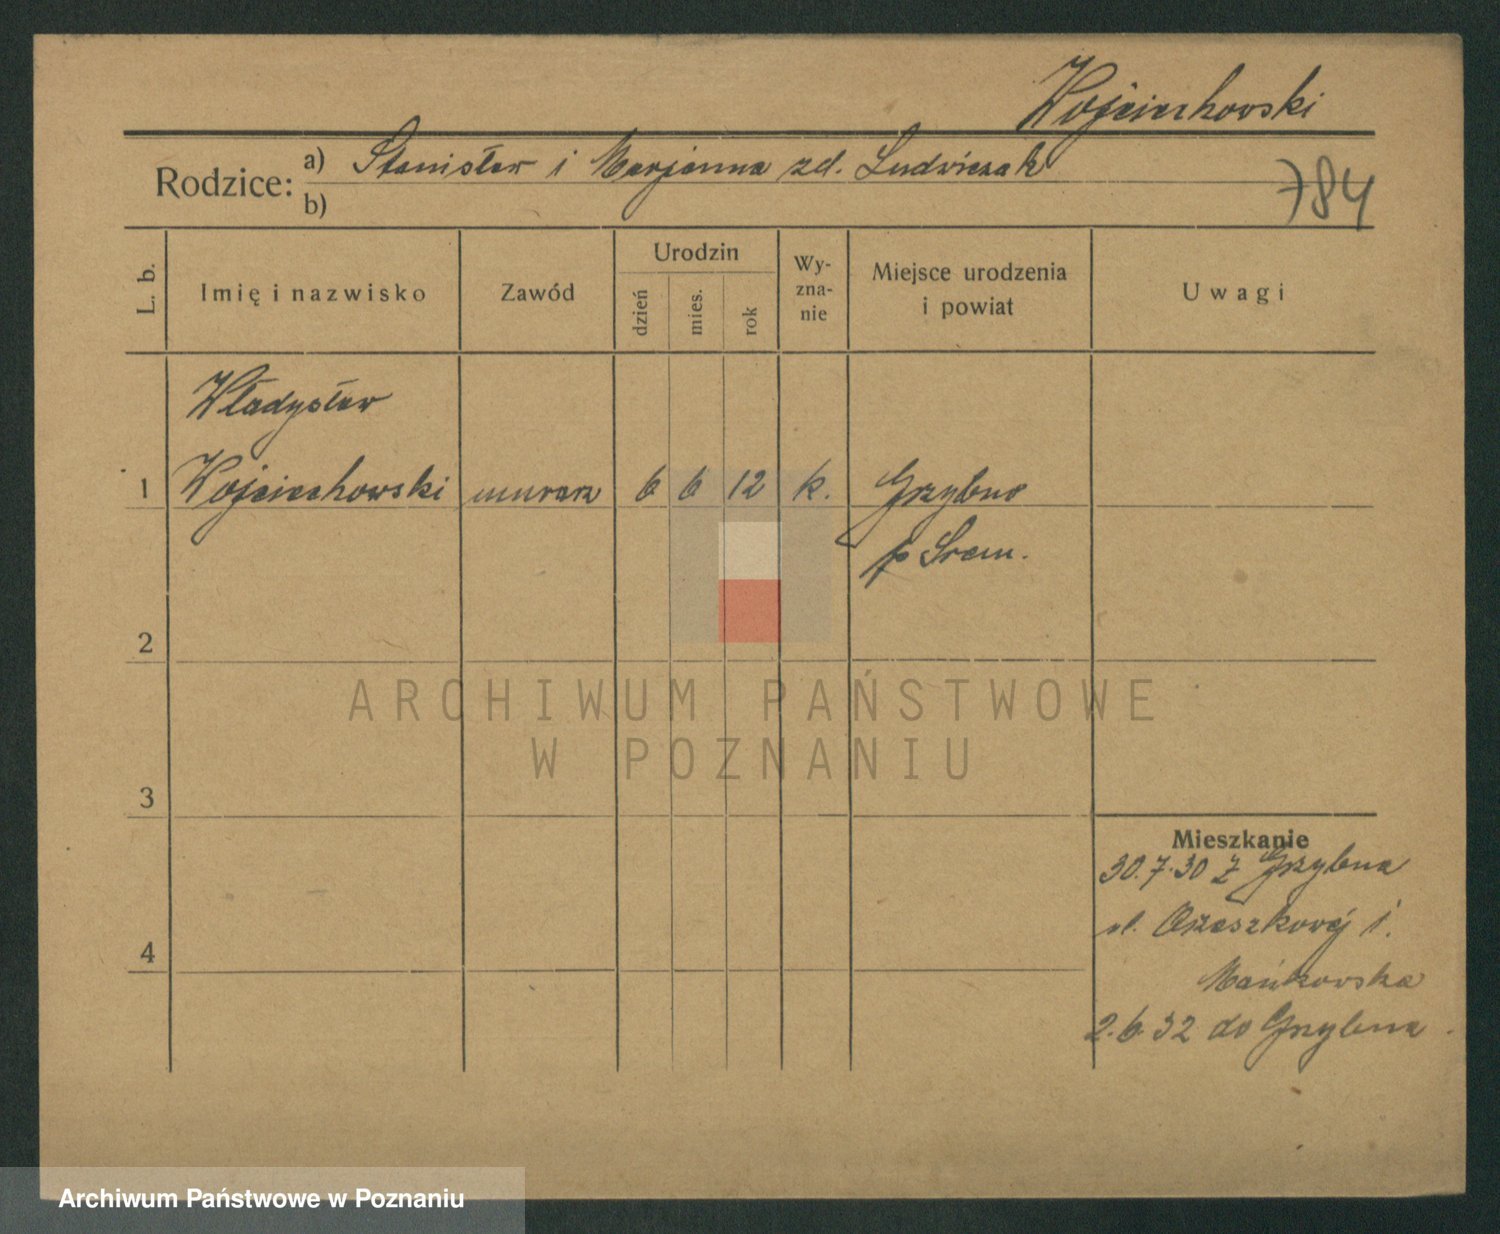 Wojciechowski
Rodzice: a) Stanisław i Marjanna zd. Ludwiczak
b)
784
L. b.
Imię i nazwisko
Zawód
Urodzin
dzień
mies.
rok
Wy-
zna-
nie
Miejsce urodzenia
i powiat
Uwagi
Władysław
1 Wojciechowski murarz 6 6 12 k. Grzybno
p Śrem.
2
3
4
ARCHIWUM PAŃSTWOWE
W POZNANIU
Mieszkanie
30.7.30 z Grzybna
ul. Orzeszkowej 1.
Mańkowska
2.6.32 do Grzybna
Archiwum Państwowe w Poznaniu